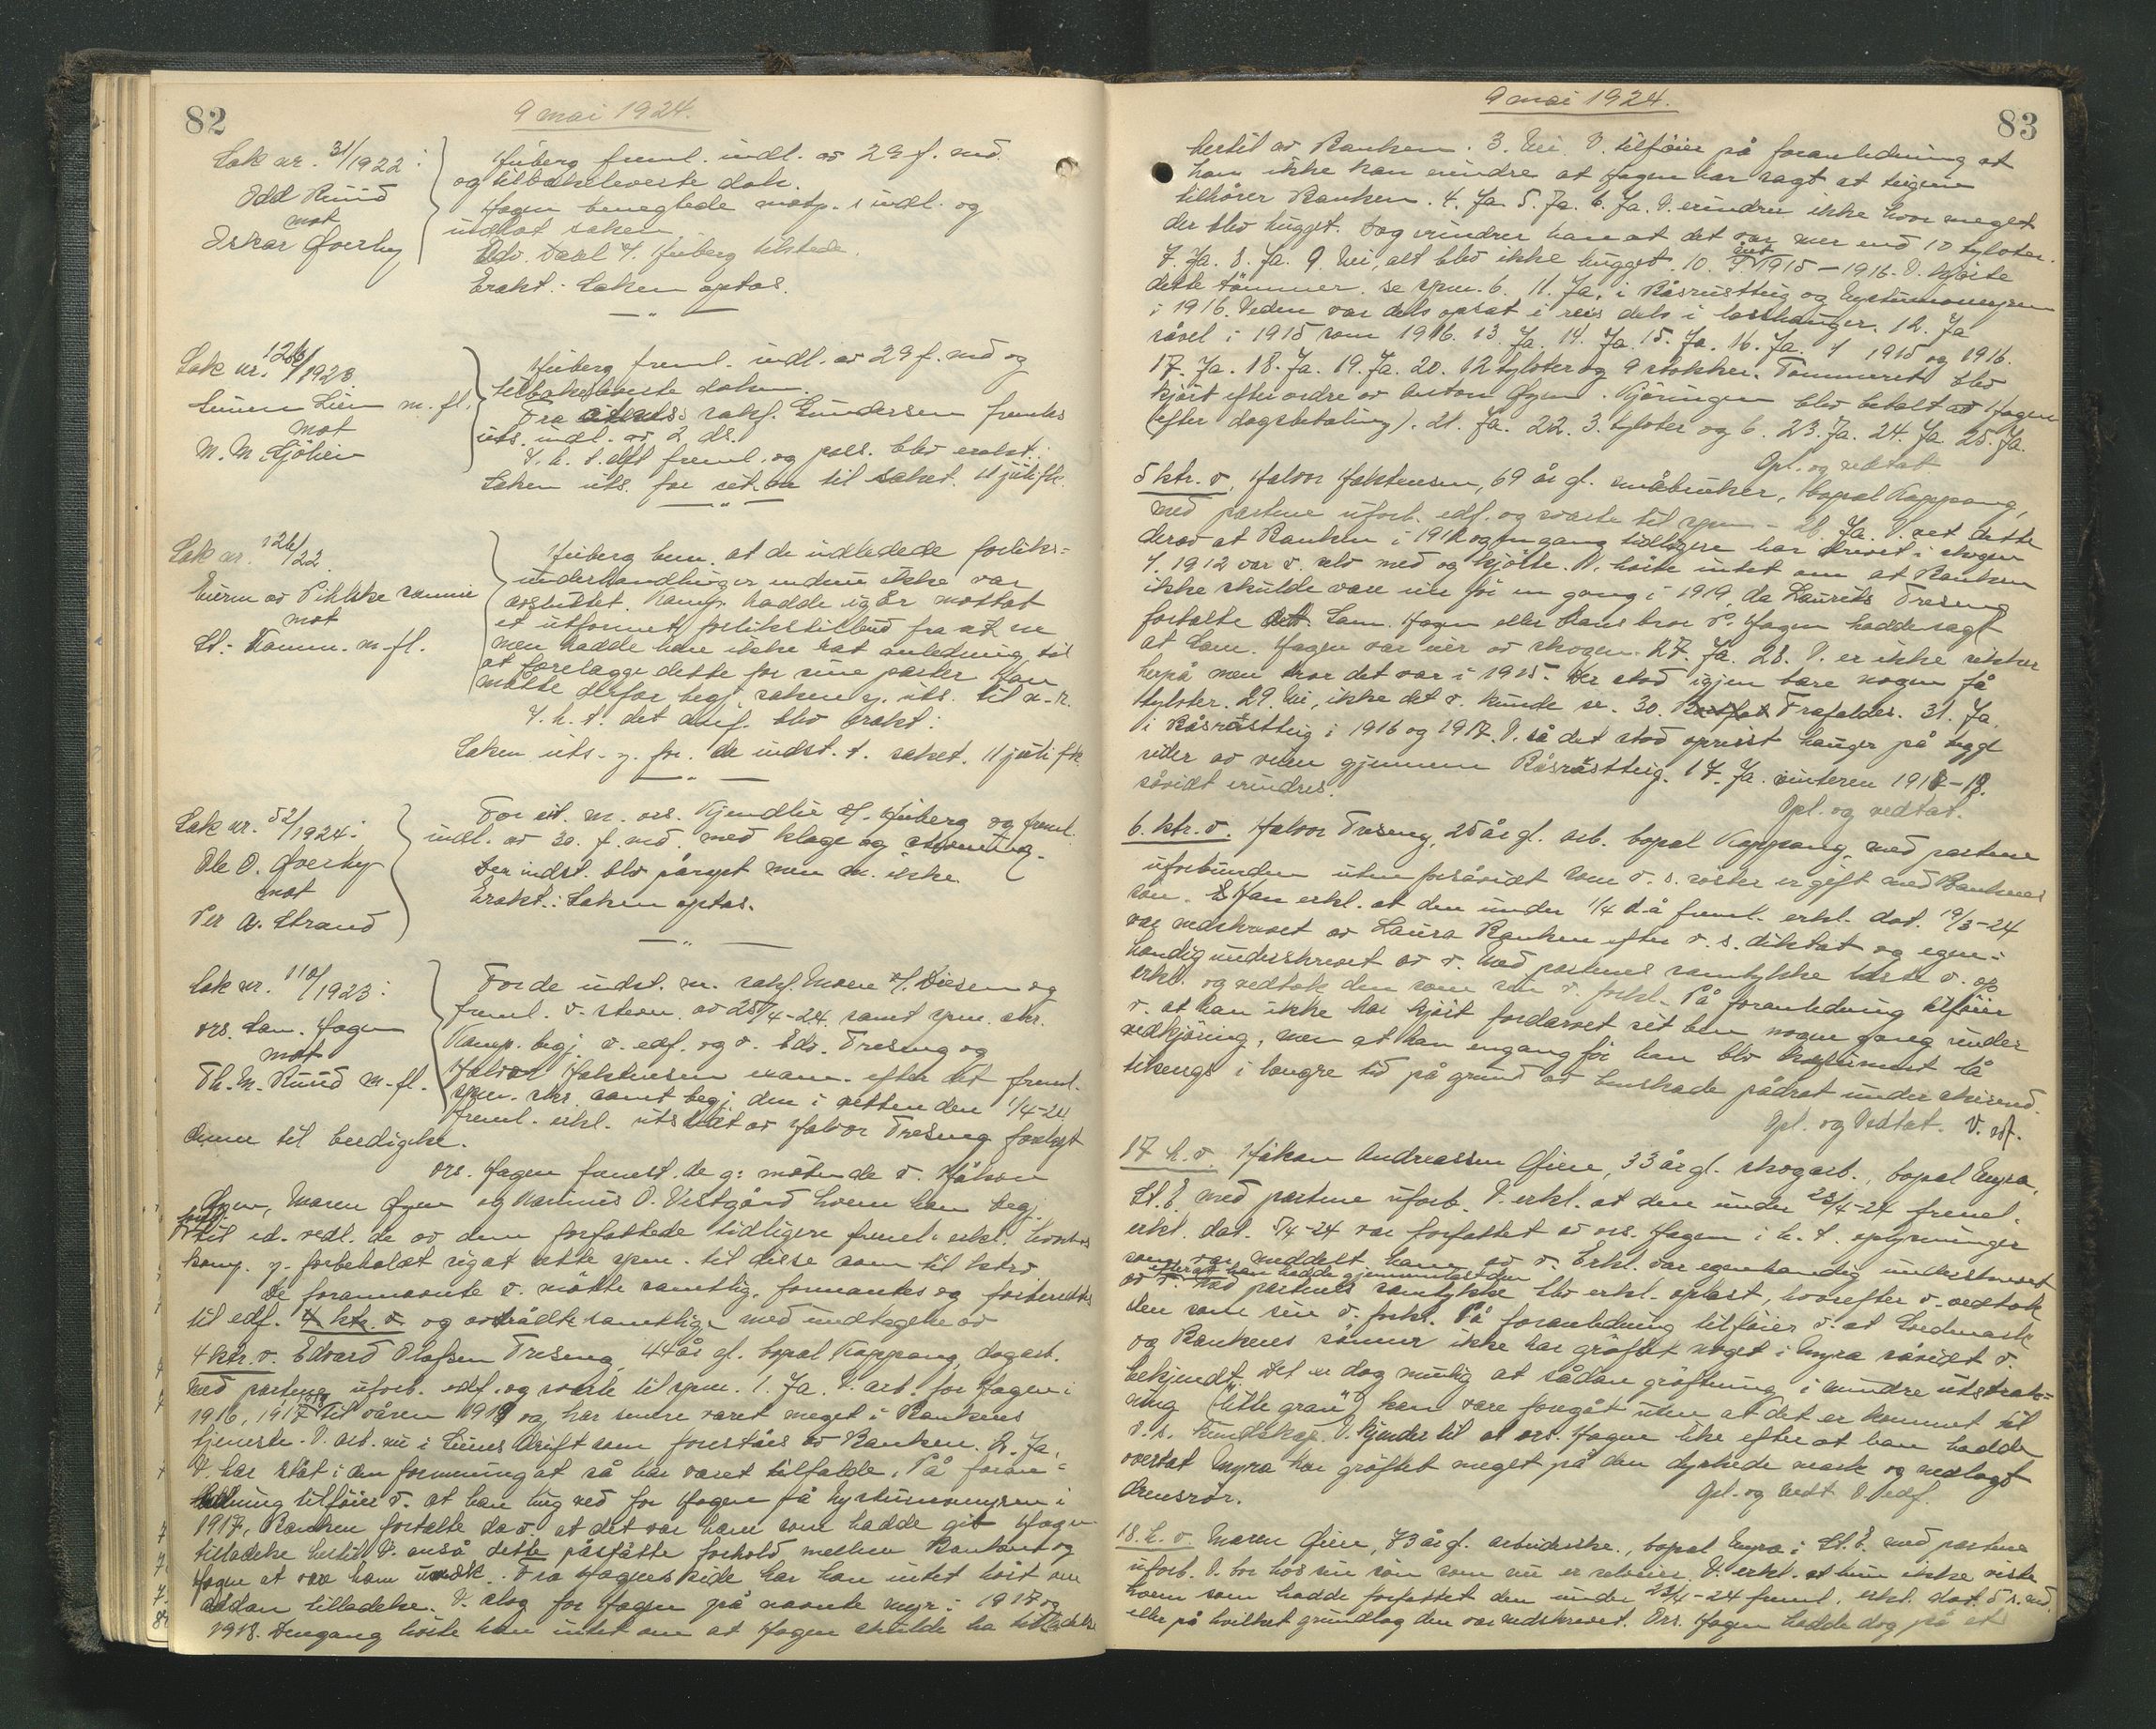 82
9 mai 1924.
Sak nr. 31/1922:
Odd Ruud
mot
Oskar Øverby
Juberg freml. indl. av 29 f. md.
og tilbakeleverte dok.
Hagen benegtede motp. s indl. og
indlot saken.
Edv. Dahl f. Juberg tilstede.
Erakt: Saken optas.
Sak nr. 126/1923.
Einen Lien m. fl.
mot
M. M. Sjölien
Juberg freml. indl. av 29 f. md og
tilbakeleverte doken.
Fra sakf. Gundersen fremla
uts. indl. av 2 ds.
I. h. t. det freml. og pass. blev erakt:
Saken uts. for til saket. 11 juli fk.
Sak nr. 126/22.
mot
St. Vamm. m. fl.
Juberg bem. at de indledede forliks-
underhandlinger endnu ikke var
avsluttet. Kamp. hadde igår mottat
et utformet forlikstilbud fra
men hadde ikke hat anledning til
at forelægge dette for sine parter. Han
måtte derfor begj. saken y. uts. til
I. h. t. det anf. blev erakt:
Saken uts. y. for de indst. t. saket. 11 juli fk.
Sak nr. 52/1924:
Ole O. Øverby
mot
Per A. Strand
For sit. m. ors. Kjendlie f. Juberg og freml.
indl. av 30. f. md. med klage og stevning.
Der indst. blev påropt men m. ikke.
Erakt.: Saken optas.
Sak nr. 110/1923:
ors. Lam. Hagen
mot
Th. M. Ruud m. fl.
For de indst. m. sakf. Moen f. Diesen og
freml. v. stevn. av 25/4-24 samt spm. skr.
Kamp. begj. v. edf. og v. Edv. Treseng og
Halvor Halstensen exam. efter det freml.
spm. skr. samt begj. den i retten den 1/4-24
freml. erkl. utstedt av Halvor Treseng forelagt
denne til beedigelse.
ors. Hagen fremst. de g: møtende v. Håkon
Øyen, Maren Øyen og Martinus O. Vestgård hvem han begj.
til ed. vedl. de av dem forfattede tidligere freml. erkl. hvortil
kamp. y. forbeholdt sig at rette spm. til disse som til ktrv.
De forannævnte v. møtte samtlig, formantes og forberedtes
til edf. og avtrådte samtlige med undtagelse av
4 ktr. v. Edvard Olafsen Treseng, 44 år gl. bopæl Koppang, dagarb.
med partene uforb. edf. og svarte til spm. 1. Ja. V. arb. for Hagen i
1916, 1917 til våren 1918 og har senere været meget i Bankens
tjeneste. V. arb. nu i Liens drift som forestås av Banken. 2. Ja.
V. har stått i den formening at så har været tilfælde. På foran-
ledning tilføier v. at han hug ved for Hagen på Nystumomyren i
1917. Banken fortalte da v. at det var ham som hadde git Hagen
tilladelse hertil. V. anså dette påståtte forhold mellem Banken og
Hagen at være ham uvedk. Fra Hagens side har han intet hørt om
sådan tilladelse. V. slog for Hagen på nævnte myr i 1917 og
1918. Dengang hørte han intet om at Hagen skulde ha tilladelse
83
9 mai 1924.
hertil av Banken. 3. Nei. V. tilføier på foranledning at
han ikke kan erindre at Hagen har sagt at teigene
tilhører Banken. 4. Ja. 5. Ja. 6. Ja. V. erindrer ikke hvor meget
der blev hugget. Dog erindrer han at det var mer end 10 tylvter.
7. Ja. 8. Ja. 9. Nei, alt blev ikke hugget. 10. 1915-1916. V. kjørte
dette tømmer. se spm. 6. 11. Ja, i Råsrustteig og Nystumomyren
i 1916. Veden var dels opsat i reis dels i lasshauger. 12. Ja
såvel i 1915 som 1916. 13. Ja. 14. Ja. 15. Ja. 16. Ja. I 1915 og 1916.
17. Ja. 18. Ja. 19. Ja. 20. 12 tylvter og 9 stokker. Tømmeret blev
kjørt efter ordre av Anton Øyen. Kjøringen blev betalt av Hagen
(efter dagsbetaling). 21. Ja. 22. 3. tylvter og 6. 23. Ja. 24. Ja. 25. Ja.
Opl. og vedtat.
5 ktr. v. Halvor Halstensen, 69 år gl. småbruker, bopæl Koppang,
med partene uforb. edf. og svarte til spm. 26. Ja. V. vet dette
derav at Banken i 1912 og en gang tidligere har drevet i skogen
I 1912 var v. selv med og kjørte. V. hørte intet om at Banken
ikke skulde være eier før en gang i 1919, da Laurits Treseng
fortalte det. Lam. Hagen eller hans bror P. Hagen hadde sagt
at Lam. Hagen var eier av skogen. 27. Ja. 28. V. er ikke sikker
herpå men tror det var i 1915. Der stod igjen bare nogen få
tylvter. 29. Nei, ikke det v. kunde se. 30. Frafaldes. 31. Ja.
i Råsrustteig i 1916 og 1917. V. så det stod opreist hauger på begge
sider av veien gjennem Råsrustteig. 17. Ja. vinteren 1917-18.
såvidt erindres.
Opl. og vedtat.
6. ktr. v. Halvor Treseng, 25 år gl. arb. bopæl Koppang, med partene
uforbunden uten forsåvidt som v. s. søster er gift med Bankens
søn. Han erkl. at den under 1/4 d å freml. erkl. dat. 19/3-24
var nedskrevet av Laura Banken efter v. s. diktat og egen-
hændig underskrevet av v. Med partenes samtykke læste v. op
erkl. og vedtok den som sin v. forkl. På foranledning tilføier
v. at han ikke har kjørt fordærvet sit ben nogen gang under
vedkjøring, men at han engang før han blev konfirmert lå
tilsengs i længre tid på grund av benskade pådrat under skirend.
Opl. og Vedtat. V. edf.
17 h. v. Håkon Andreassen Øien, 33 år gl. skogarb., bopæl Myra,
St. E. med partene uforb. V. erkl. at den under 23/4-24 freml.
erkl. dat. 5/4-24 var forfattet av ors. Hagen i h. t. oplysninger
som var meddelt ham av v. Erkl. var egenhændig underskrevet
av v. efter at han hadde gjennemlæst den
Med partenes samtykke blev erkl. oplæst, hvorefter v. vedtok
den som sin v. forkl. På foranledning tilføier v. at Svedmark
og Bankens sønner ikke har grøftet noget i Myra såvidt v.
bekjendt. Det er dog mulig at sådan grøftning i mindre utstræk-
ning ("litte gran") kan være foregåt uten at det er kommet til
v. s. kundskap. V. kjender til at ors. Hagen like efter at han hadde
overtat Myra har grøftet meget på den dyrkede mark og nedlagt
drensrør.
Opl. og vedt. V. edf.
18. h. v. Maren Øien, 73 år gl. arbeiderske., bopæl Myra i St. E. med partene
uforb. V. bor hos sin søn som nu er selveier. V. erkl. at hun ikke visste
hvem som hadde forfattet den under 23/4-24 freml. erkl. dat. 5 s. md.
eller på hvilket grundlag den var nedskrevet. Ors. Hagen hadde dog på et